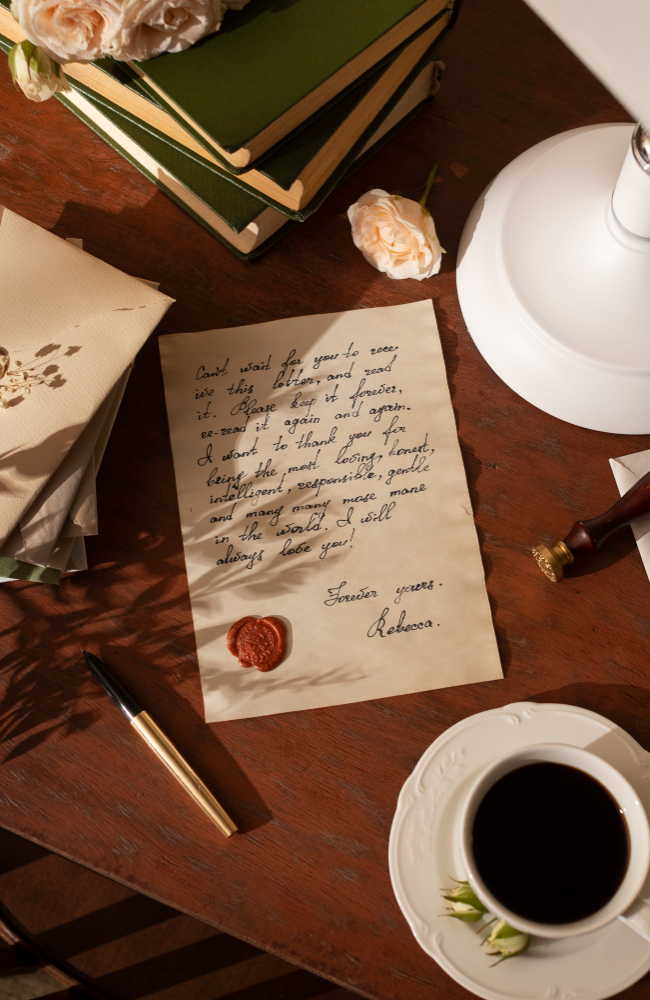 Can't wait for you to rece
ive this letter, and read
it. Please keep it forever,
re-read it again and again.
I want to thank you for
being the most loving, honest,
intelligent, responsible, gentle
and many many more mane
in the world. I will
always love you!
Forever yours.
Rebecca.